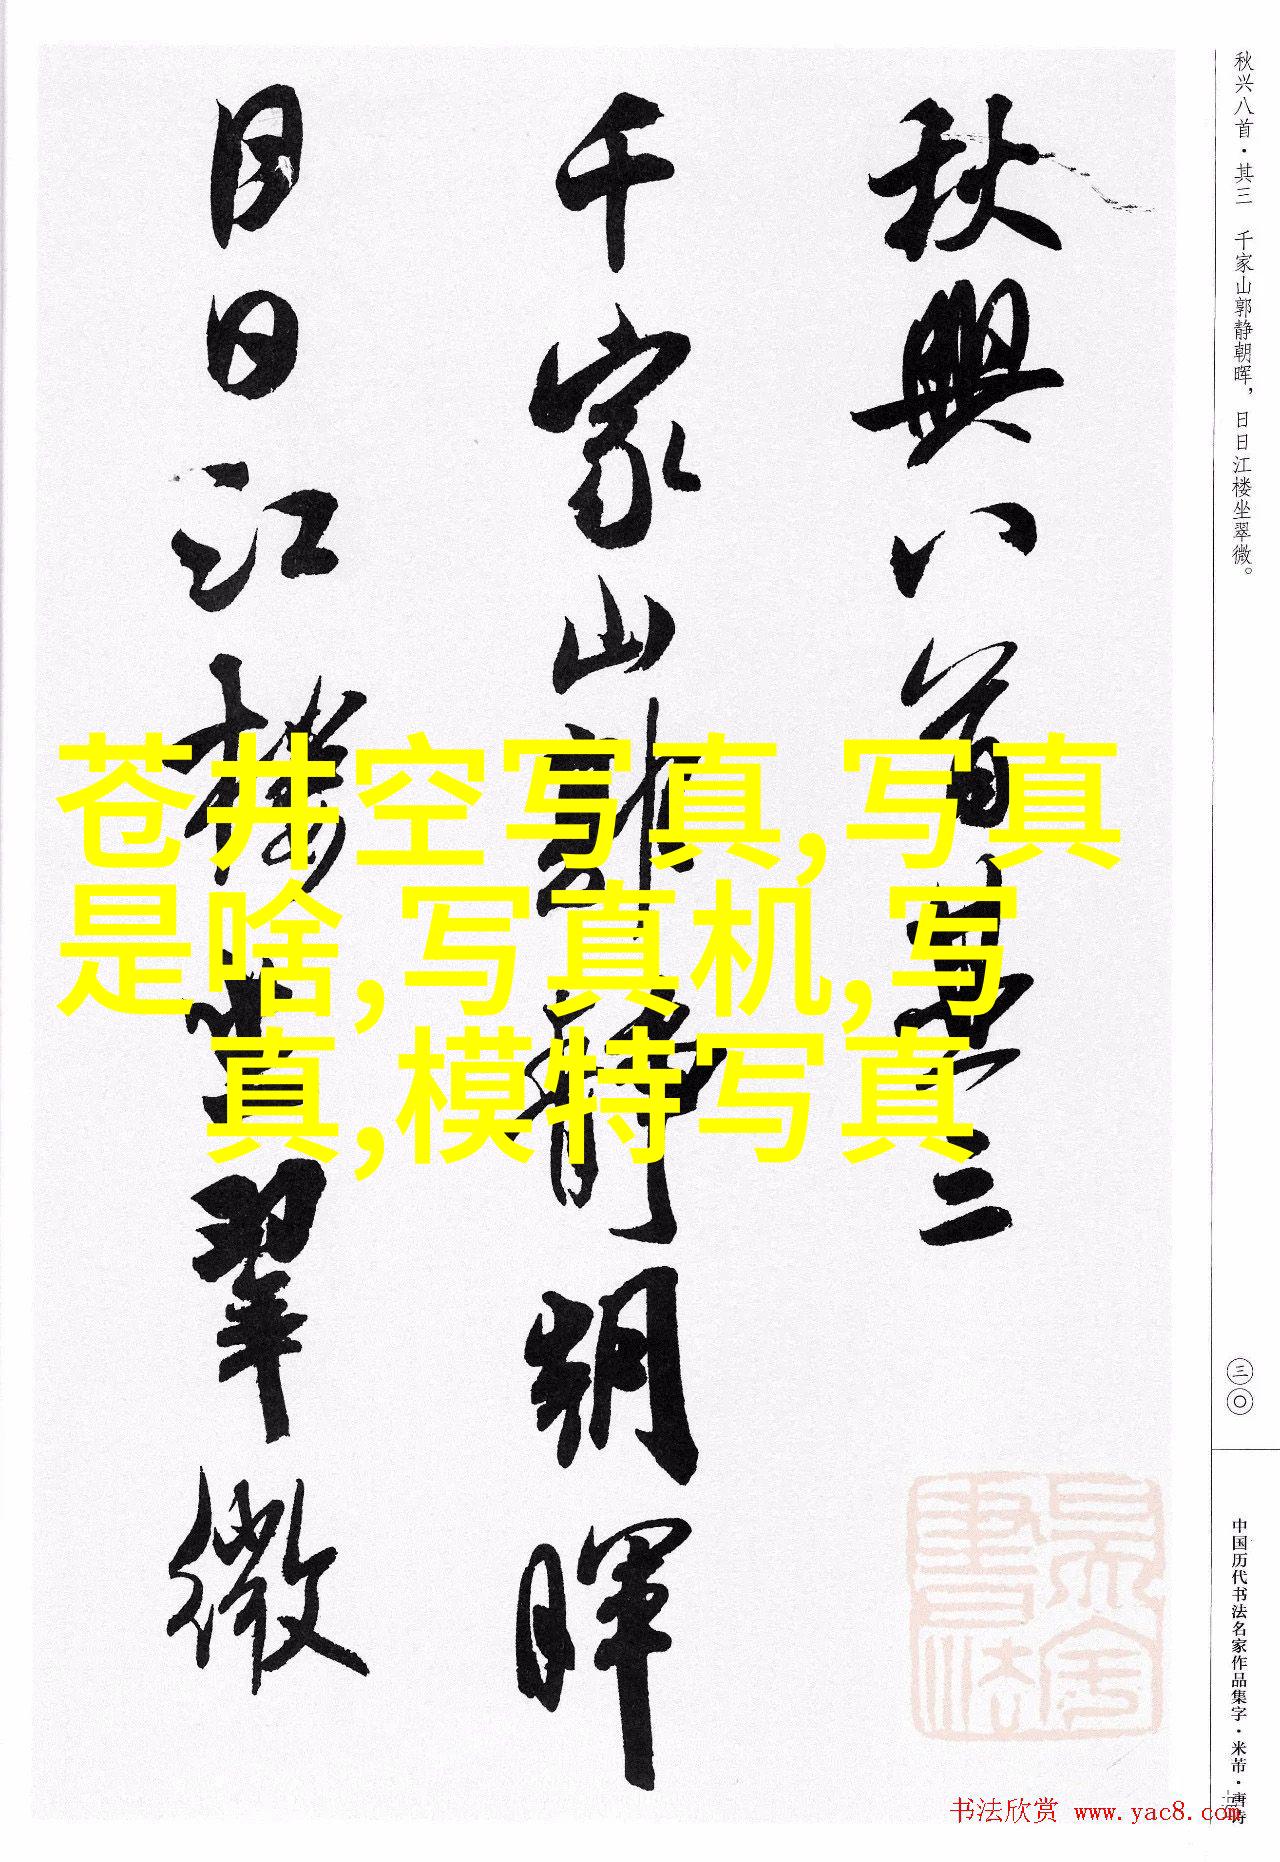 秋興八首其三
千家山郭靜朝暉
日日江樓坐翠微
秋兴八首·其三 千家山郭静朝晖，日日江楼坐翠微。
三〇
中国历代书法名家作品集字·米芾·唐诗
苍井空写真,写真
是啥,写真机,写
真,模特写真
书法欣赏 www.yac8.com